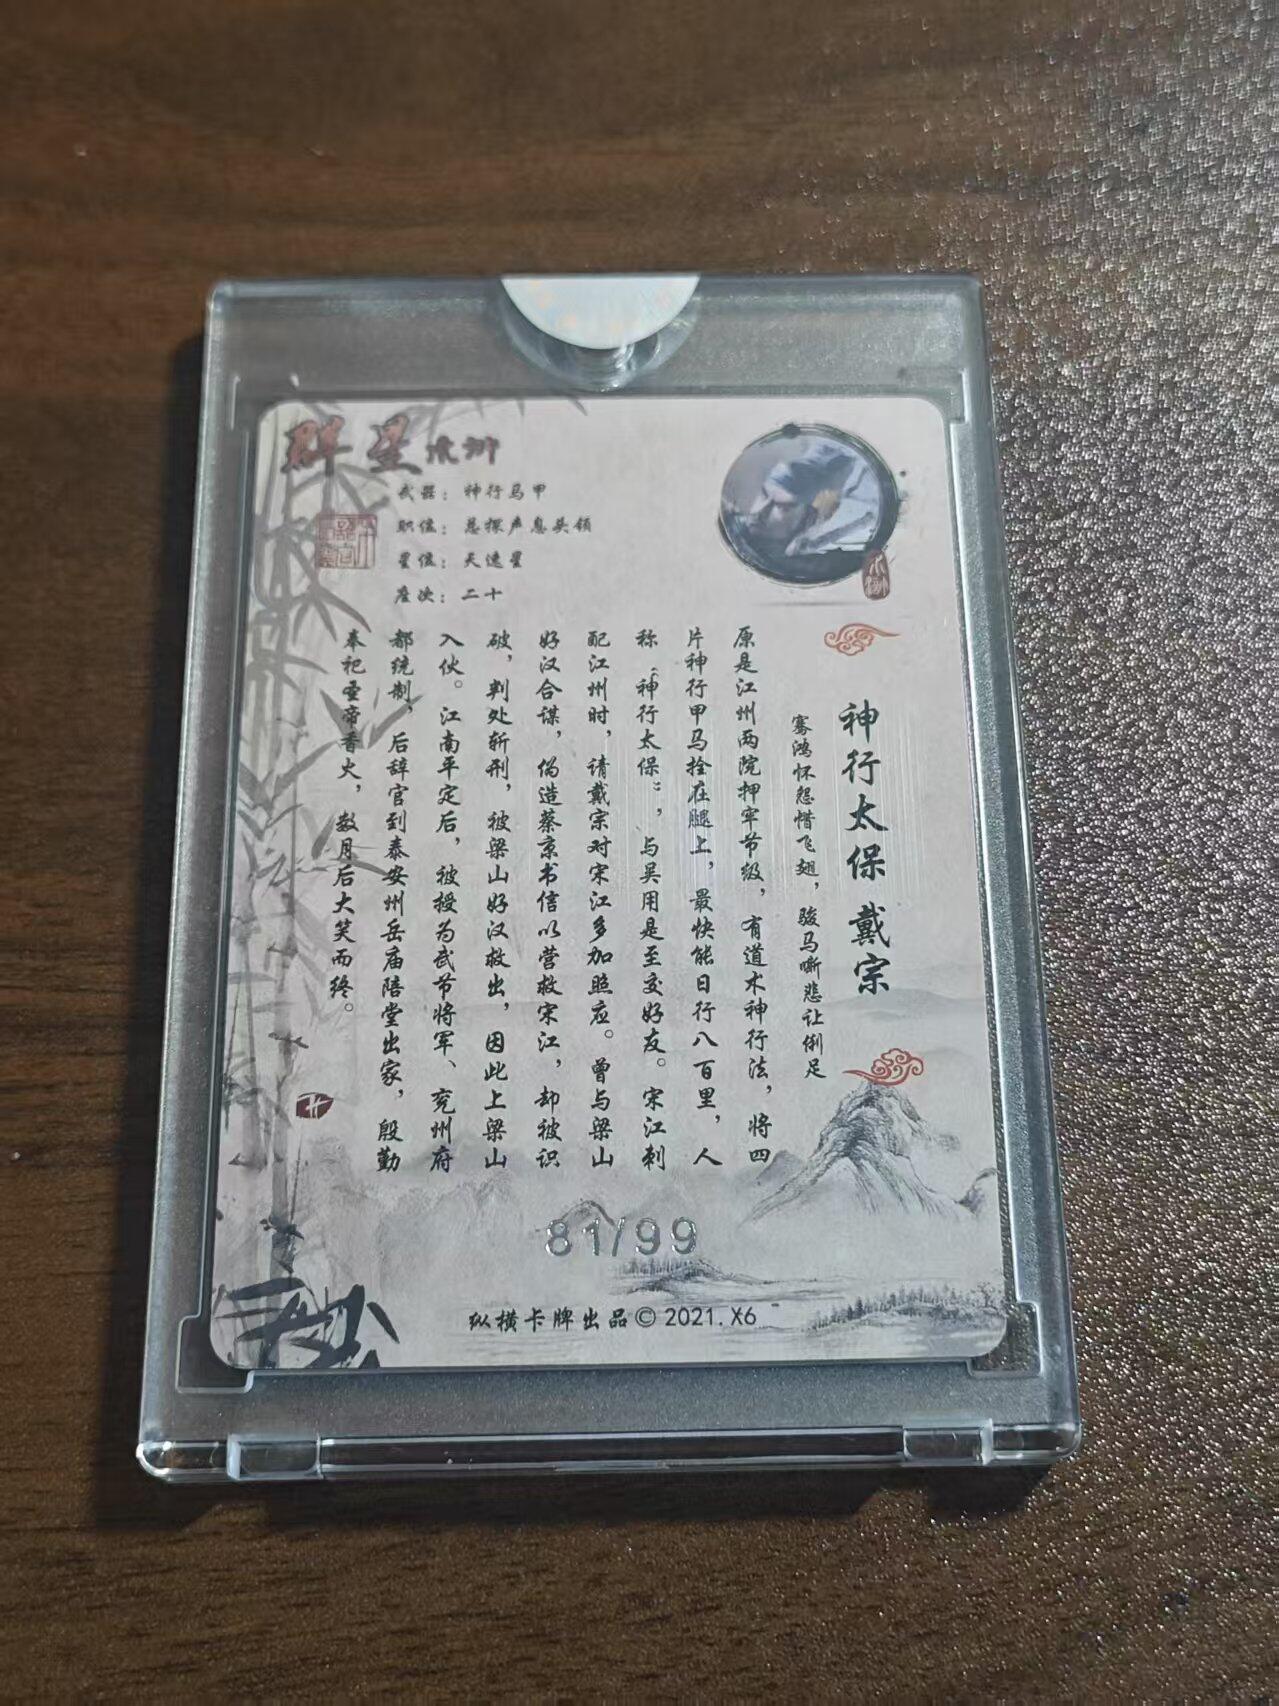 群星水浒
武器：神行马甲
职位：总探声息头领
星位：天速星
座次：二十
水浒
神行太保 戴宗
寒鸿怀怨惜飞翅，骏马嘶悲让俐足
原是江州两院押牢节级，有道术神行法，将四
片神行甲马拴在腿上，最快能日行八百里，人
称“神行太保”，与吴用是至交好友。宋江刺
配江州时，请戴宗对宋江多加照应。曾与梁山
好汉合谋，伪造蔡京书信以营救宋江，却被识
破，判处斩刑，被梁山好汉救出，因此上梁山
入伙。江南平定后，被授为武节将军、兖州府
都统制，后辞官到泰安州岳庙陪堂出家，殷勤
奉祀圣帝香火，数月后大笑而终。
81/99
纵横卡牌出品© 2021. X6